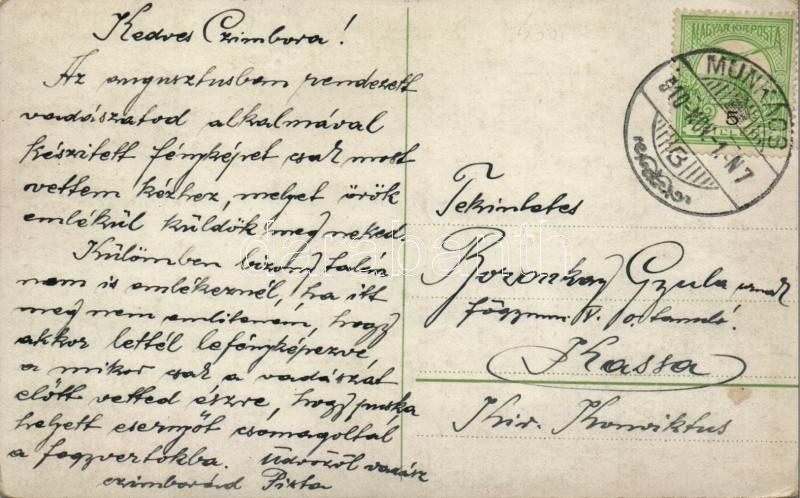 Kedves Czimbora!
Az augusztusban rendezett
vadászatod alkalmával
készitett fényképet csak most
vettem kézhez, melyet örök
emlékül küldök meg neked.
Külömben bizony talán
nem is emlékeznél, ha itt
meg nem emlitenem, hogy
akkor lettél lefényképezve
a mikor csak a vadászat
előtt vetted észre, hogy puska
helyett esernyőt csomagoltál
a fegyvertokba. Üdvözöl vadász
czimborád Pista
MAGYAR KIR. POSTA
5
MUNKÁCS
910 NOV. 1. N7
B
Tekintetes
Boronkay Gyula urnak
főgymn. V. o. tanuló.
Kassa
Kir. Konviktus
darabanth